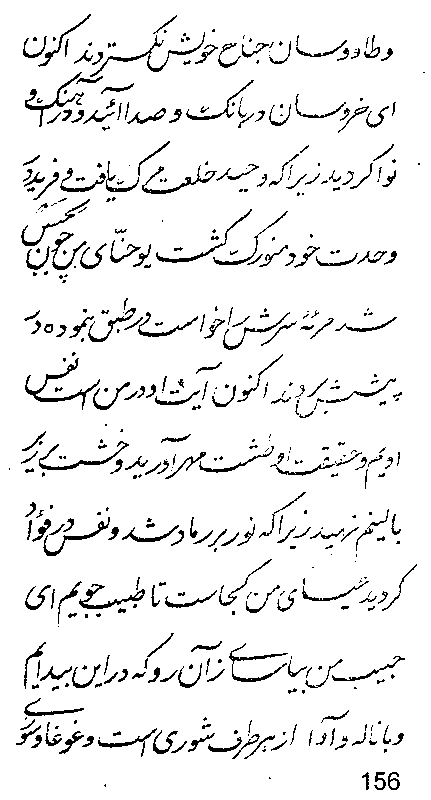 و طاووسان جناح خویش بگستردند اکنون
ای خروسان در بانک و صدا آئید و در آهنک و
نوا گردید زیرا که وحید خلعت مرک یافت و فرید در
وحدت خود منورک گشت یوحنّای من چون
شد سرش را خواست در طبق نموده در
پیشش بردند اکنون آیت او در من است نفیس
اویم و حقیقت او طشت مهر آورید و خشت بر زیر
بالینم نهید زیرا که نور بر رماد شد و نفس در فؤاد
گردید عیسای من کجاست تا طبیب جویم ای
حبیب من بیا از آن رو که در این بیدایم
و با ناله و آوا از هر طرف شوری است و غوغا و سوی
156